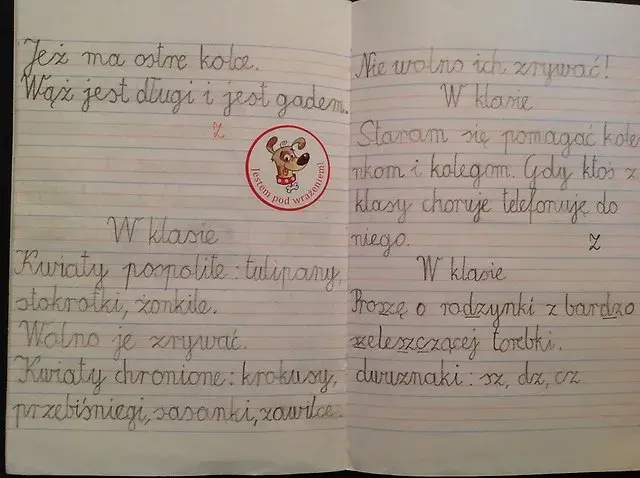 Jeż ma ostre kolce.
Wąż jest długi i jest gadem.
Z
Jestem pod wrażeniem!
W klasie
Kwiaty pospolite: tulipany,
stokrotki, żonkile.
Wolno je zrywać.
Kwiaty chronione: krokusy,
przebiśniegi, sasanki, zawilce.
Nie wolno ich zrywać!
W klasie
Staram się pomagać kole
nkom i kolegom. Gdy ktoś z
klasy choruje telefonuję do
niego.
Z
W klasie
Proszę o rodzynki z bardzo
szeleszczącej torebki.
dwuznaki: sz, dz, cz